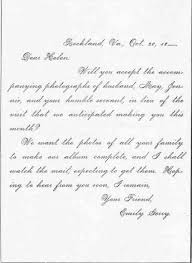 Rockland, Va., Oct. 20, 18
Dear Helen
Will you accept the accom-
panying photographs of husband, May, Jen-
nie, and your humble servant, in lieu of the
visit that we anticipated making you this
month?
We want the photos of all your family
to make our album complete, and I shall
watch the mail, expecting to get them. Hop-
ing to hear from you soon, I remain,
Your Friend,
Emily